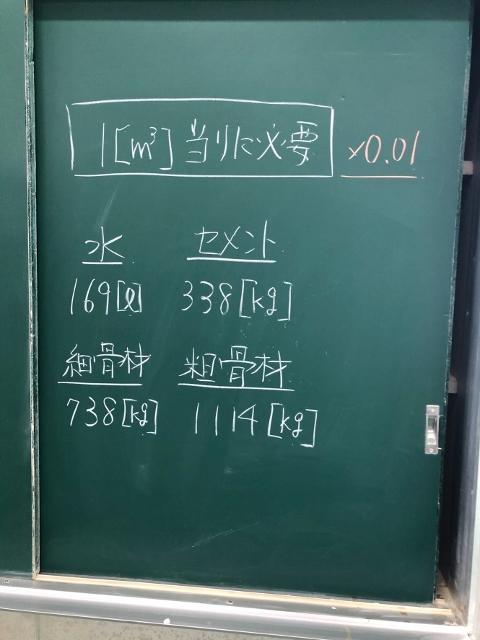 1[m³]当りに必要 ×0.01
水 セメント
169[ℓ] 338[kg]
細骨材 粗骨材
738[kg] 1114[kg]